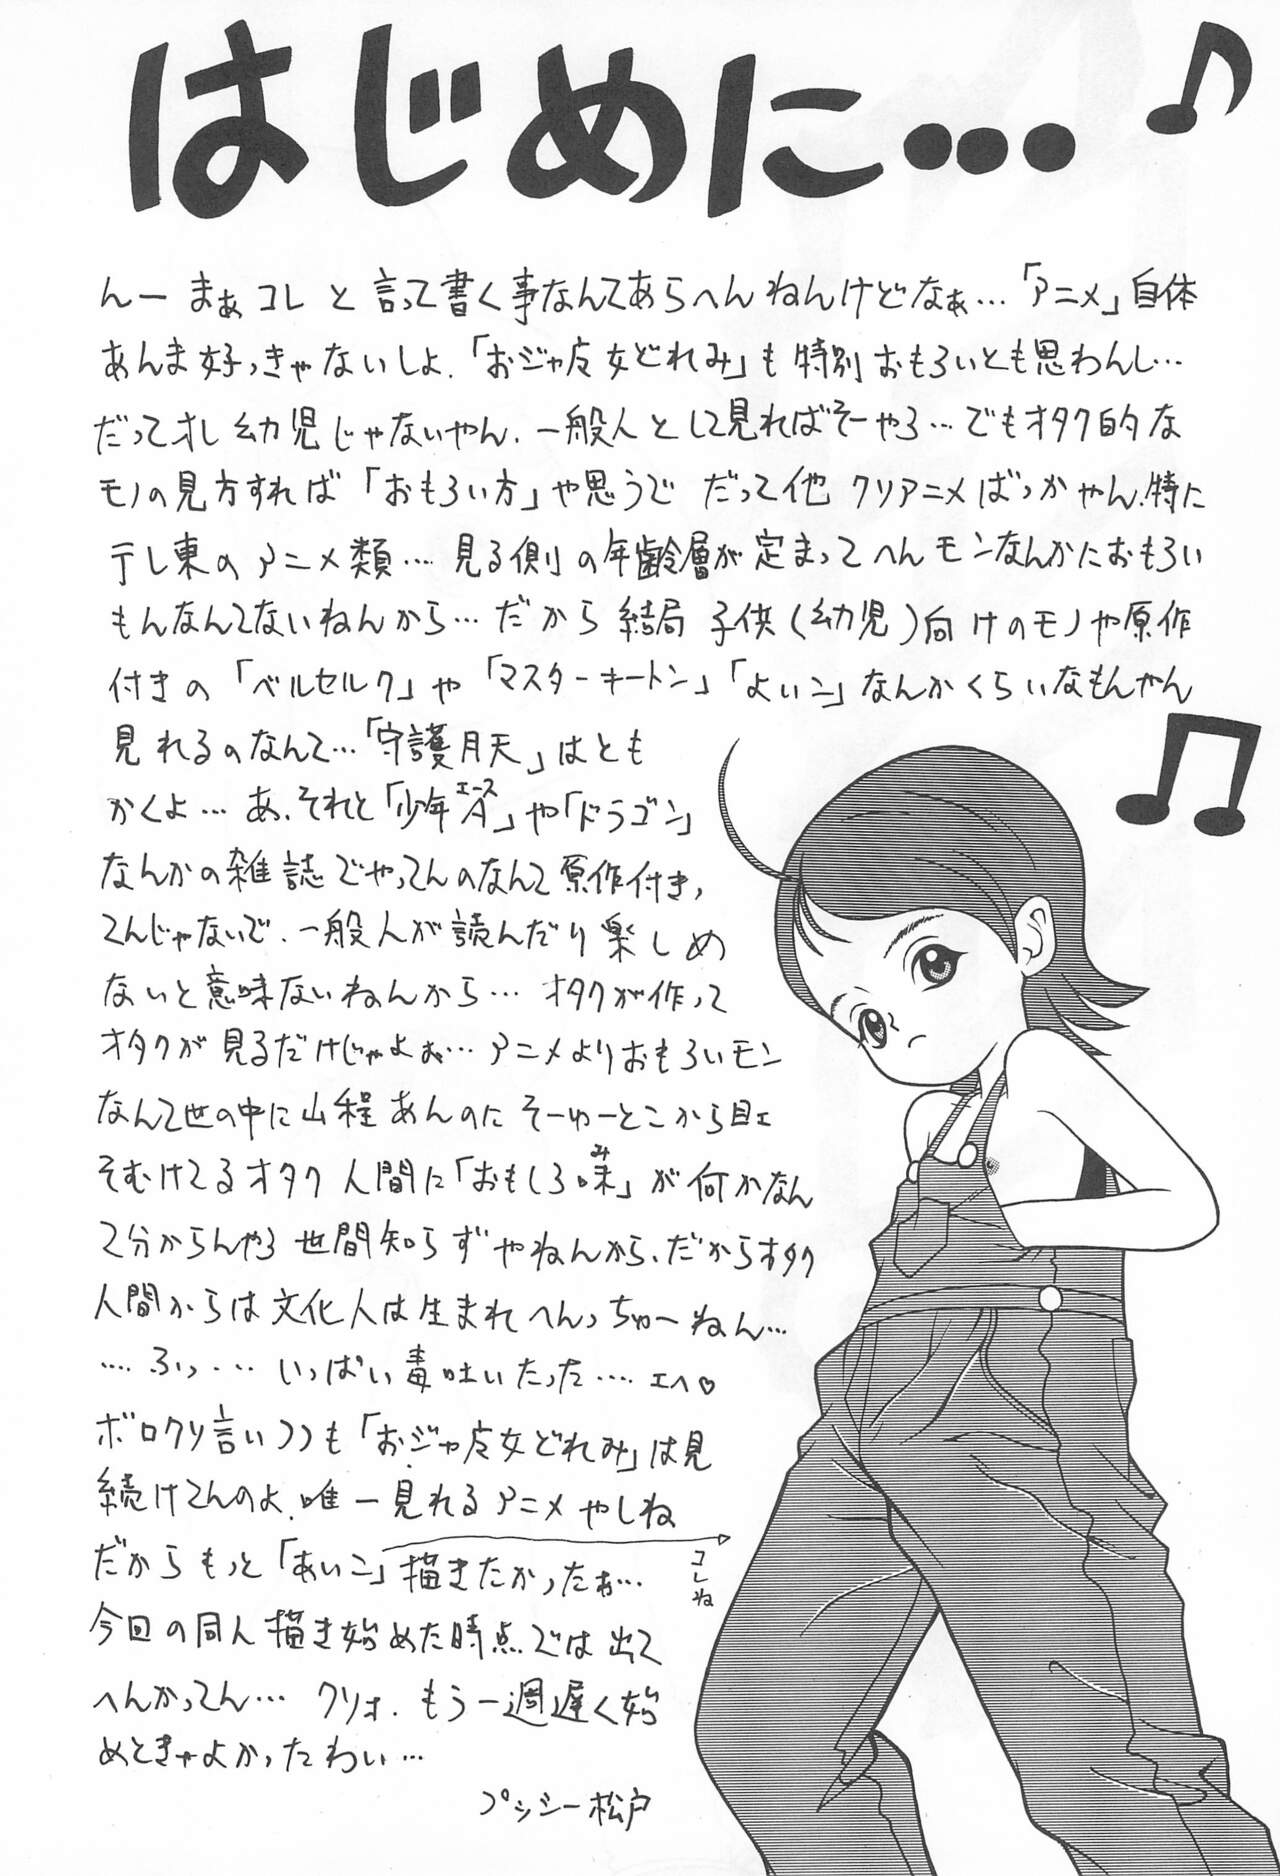 はじめに…
んー まぁ コレ と 言って書く事なんてあらへんねんけどなぁ…「アニメ」自体
あんま好っきゃないしよ.「おジャ魔女どれみ」も 特別 おもろいとも思わんし…
だってオレ 幼児じゃないやん. 一般人として見ればそーやろ…でもオタク的な
モノの見方すれば「おもろい方」や思うで だって他 クソアニメばっかやん!特に
テレ東のアニメ類…. 見る側の年齢層が定まってへんモンなんかにおもろい
もんなんてないねんから…だから 結局 子供(幼児)向けのモノや原作
付きの「ベルセルク」や「マスターキートン」「よいこ」なんかくらいなもんやん
見れるのなんて…「守護月天」はとも
かくよ… あ、それと「少年A」や「ドラゴン」
エース
なんかの雑誌でやってんのなんて原作付き,
てんじゃないで. 一般人が読んだり楽しめ
ないと意味ないねんから… オタクが作って
オタクが見るだけじゃよぉ… アニメよりおもろいモン
なんて世の中に山程あんのにそーゆーとこから目ェ
そむけてるオタク人間に「おもしろ味」が何かなん
み
て分からんやろ 世間知らずやねんから、だからオタク
人間からは文化人は生まれへんっちゅーねん…
….ふっ….いっぱい毒吐いたった…. エヘ♡
ボロクソ言いつつも「おジャ魔女どれみ」は見
続けてんのよ. 唯一見れるアニメやしね
だからもっと「あいこ」描きたかったぁ…
コレね
今回の同人描き始めた時点では出て
へんかってん… クソォ. もう一週遅く始
めときゃよかったわい…
プッシー松戸